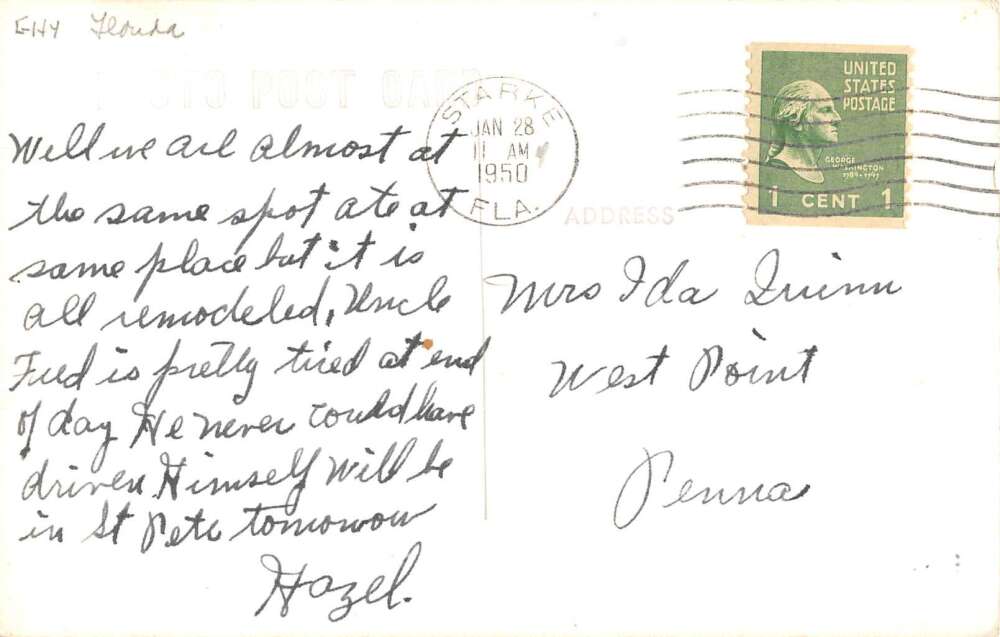 Florida
PHOTO POST CARD
STARKE
JAN 28
11 AM
1950
FLA.
UNITED
STATES
POSTAGE
GEORGE
WASHINGTON
1789-1797
1 CENT 1
ADDRESS
Well we are almost at
the same spot ate at
same place but it is
all remodeled, Uncle
Fred is pretty tired at end
of day He never could have
driven Himself Will be
in St Pete tomorrow
Hazel.
Mrs Ida Quinn
West Point
Penna